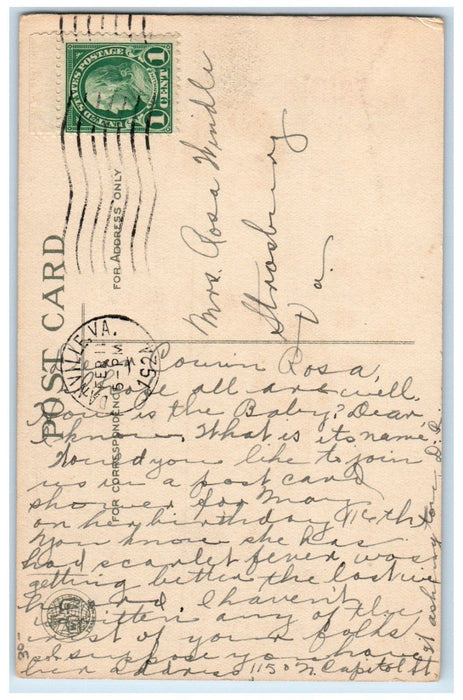 UNITED STATES POSTAGE
1 CENT 1
DANVILLE, VA.
FEB 11
5 - PM
POST CARD
FOR CORRESPONDENCE
FOR ADDRESS ONLY
Mrs. Rosa Windle
Strasburg
Va.
Cousin Rosa,
Hope all are well.
How is the Baby? Dear
I know. What is its name.
Would you like to join
us in a post card
shower for Mary
on her birthday 16th
You know she has
had scarlet fever was
getting better the last we
heard. I haven't
written any of the
rest of your folks
so suppose you have
her address 1150 N. Capitol St.
Washington D.C.
30-